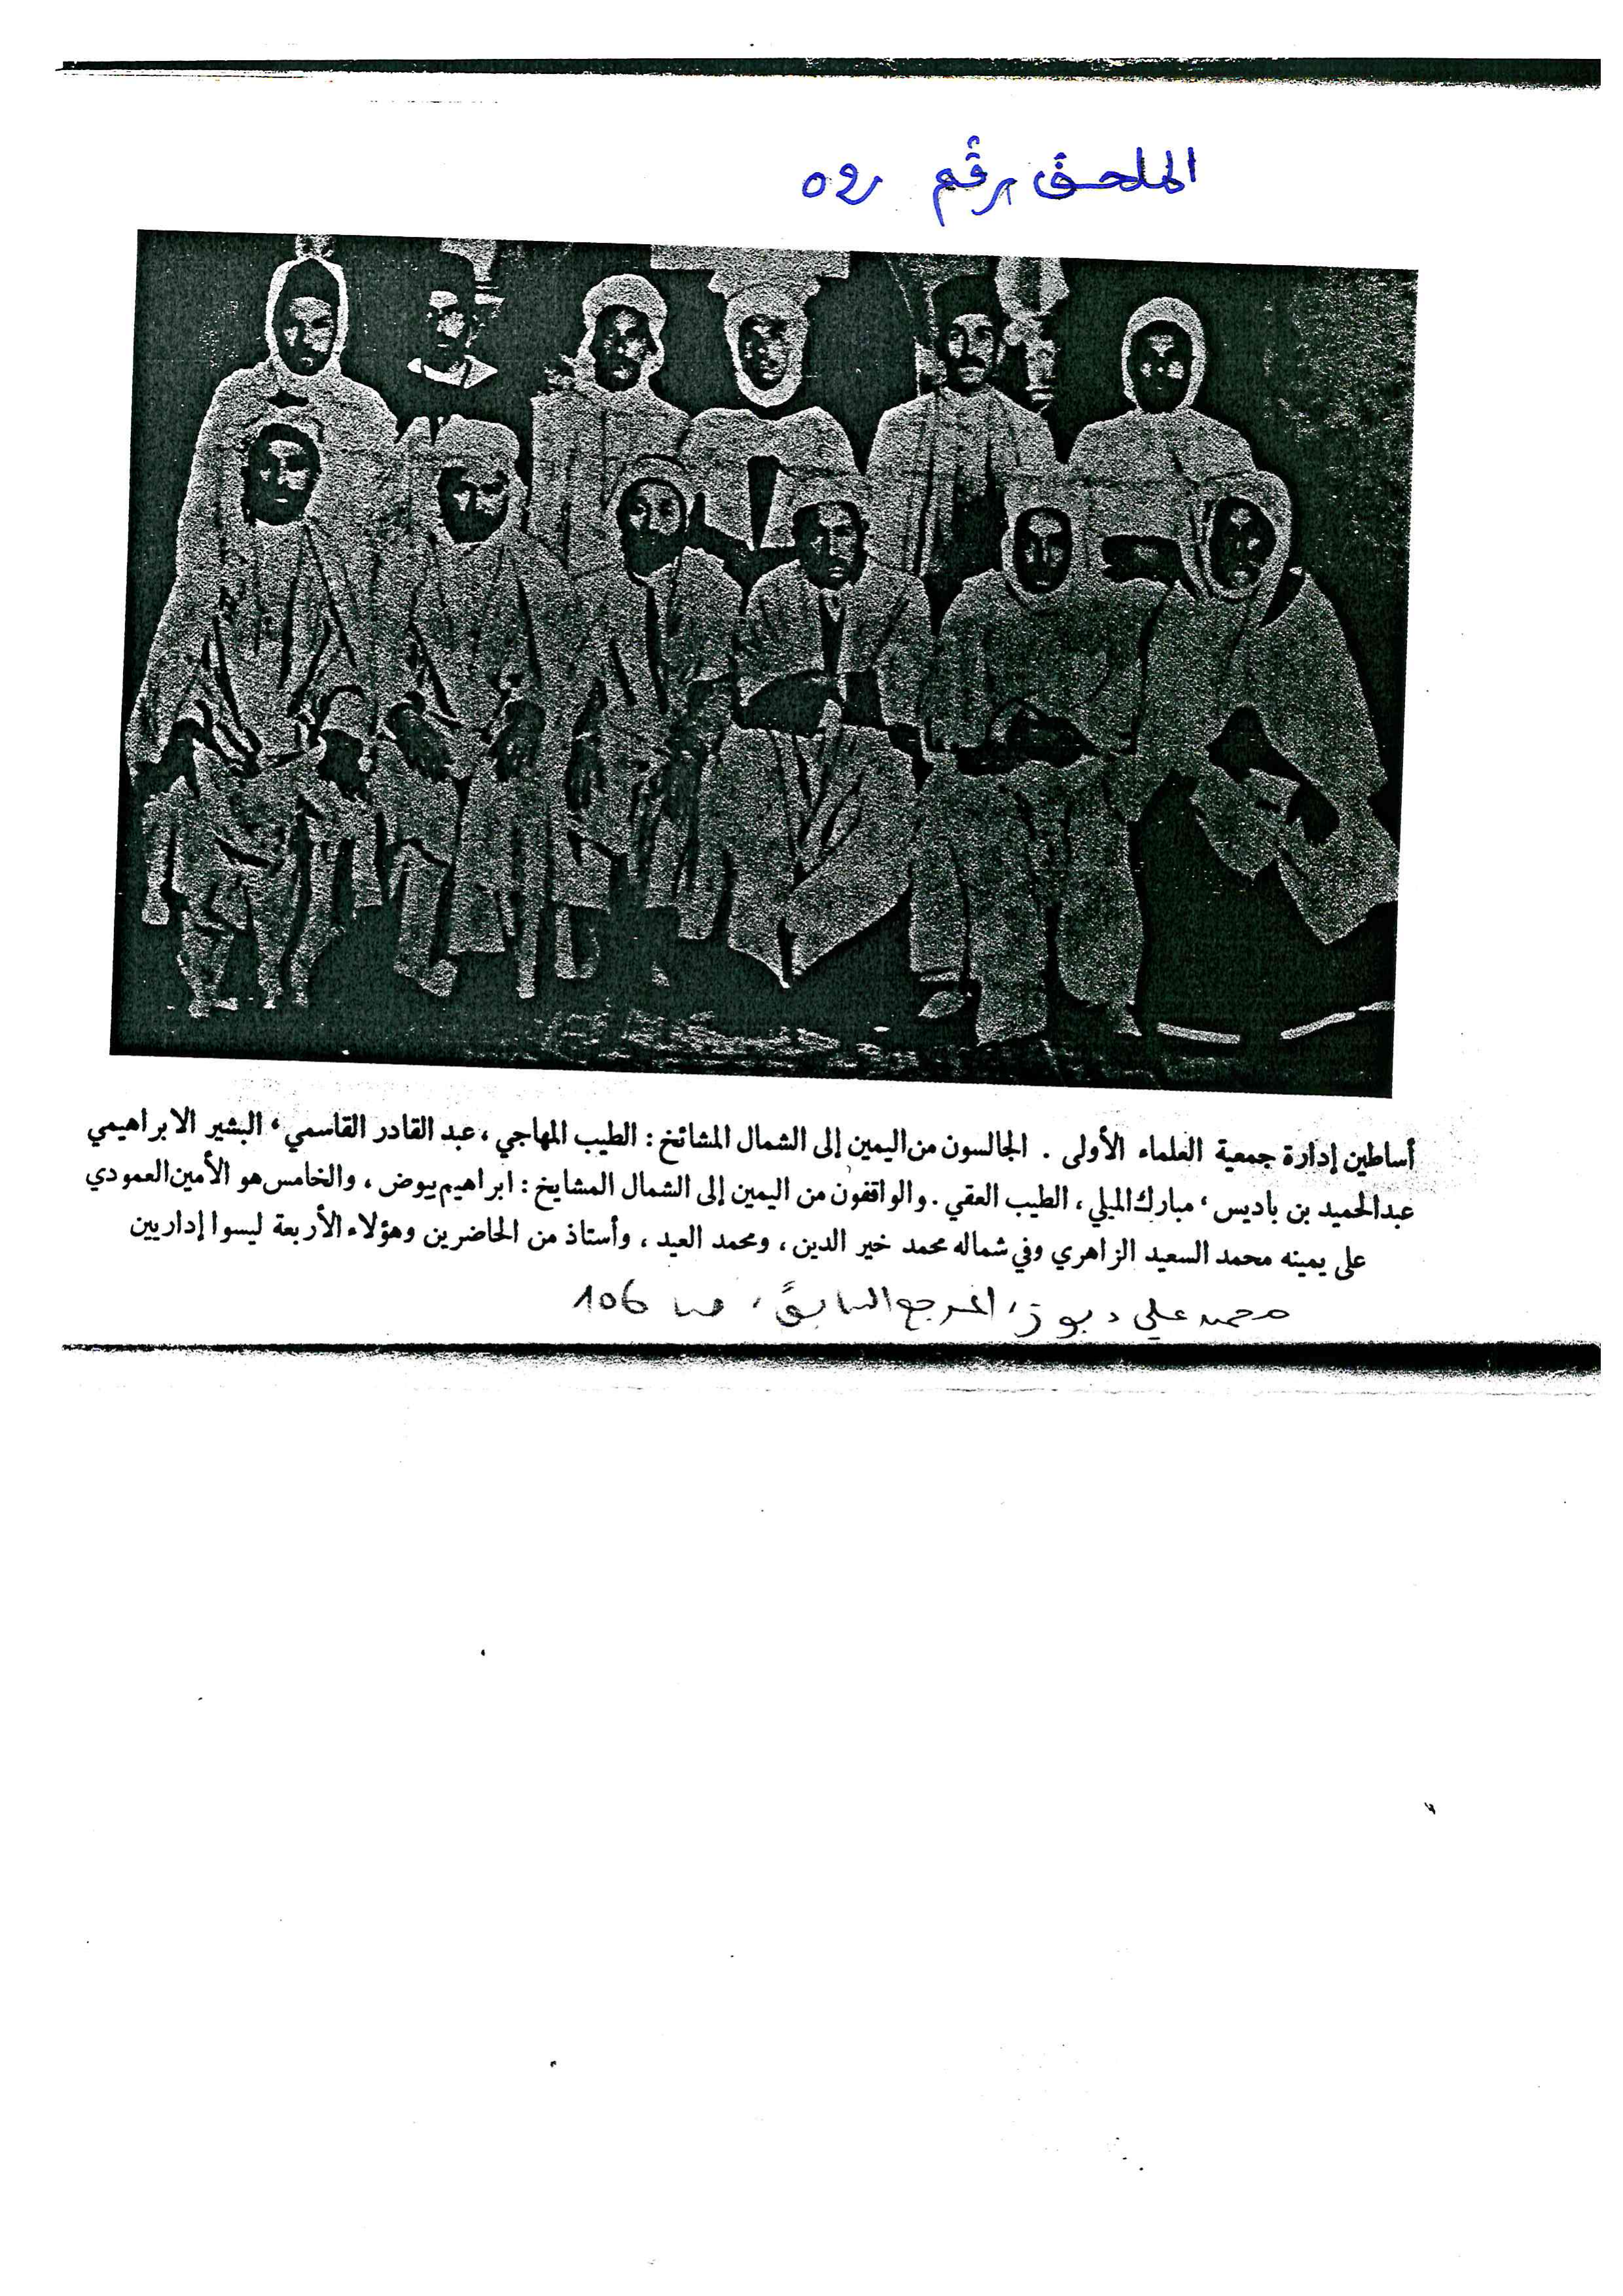 الملحق رقم 09
أساطين إدارة جمعية العلماء الأولى . الجالسون من اليمين إلى الشمال المشائخ : الطيب المهاجي ، عبد القادر القاسمي ، البشير الابراهيمي
عبدالحميد بن باديس ، مبارك الميلي ، الطيب العقبي . والواقفون من اليمين إلى الشمال المشايخ : ابراهيم بيوض ، والخامس هو الأمين العمودي
على يمينه محمد السعيد الزاهري وفي شماله محمد خير الدين ، ومحمد العيد ، وأستاذ من الحاضرين وهؤلاء الأربعة ليسوا إداريين
محمد علي دبوز ، المرجع السابق ، ص 106